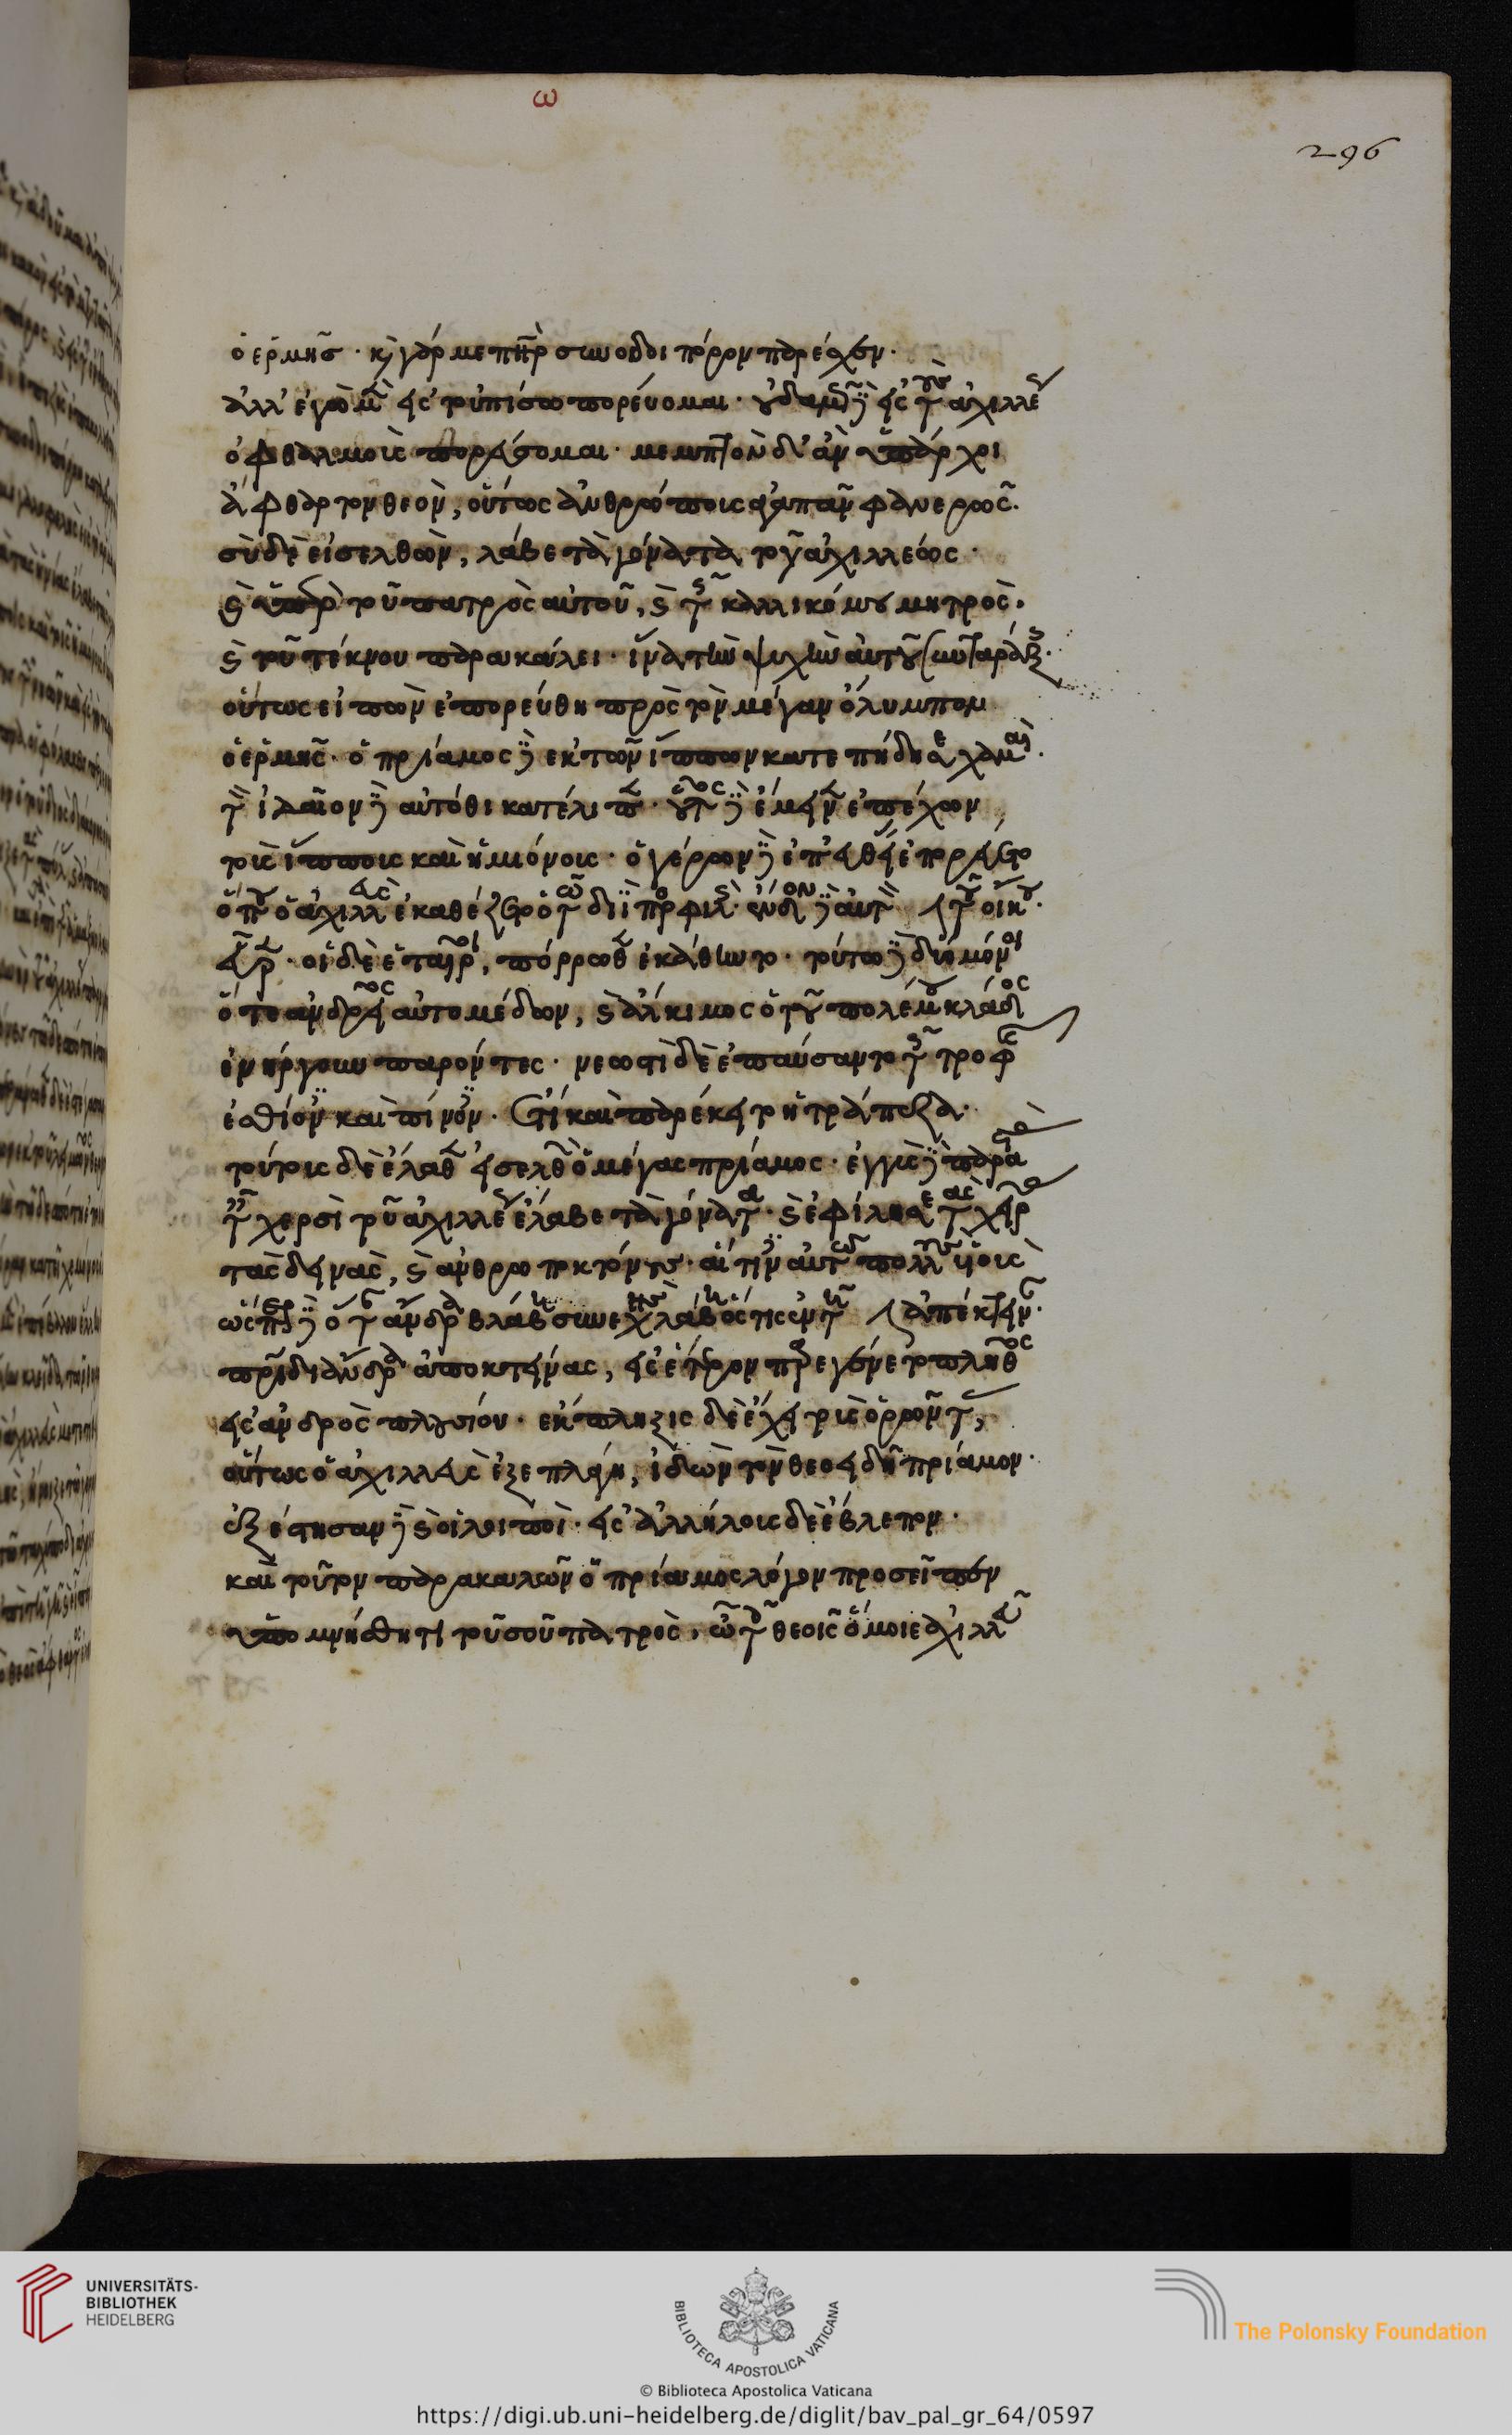 ω
296
ὁ ἑρμῆς· καὶ γάρ με πατὴρ σοι πόρον παρέχειν·
ἀλλ' ἐγὼ μὲν εἰς τοὐπίσω πορεύομαι· οὐδαμῶς δὲ εἰς τοὺς ἀχιλλέως
ὀφθαλμοὺς
μεμπτὸν δ' ἂν ὑπάρχοι
ἄφθαρτον θεὸν, οὕτως ἀνθρώποις ἀγαπᾶν φανερῶς.
σὺ δὲ εἰσελθὼν, λάβε τὰ γόνατα τοῦ ἀχιλλέως·
καὶ ὑπὲρ τοῦ πατρὸς αὐτοῦ, καὶ τῆς καλλικόμου μητρὸς.
καὶ τοῦ τέκνου παρακάλει· ἵνα τὴν ψυχὴν αὐτοῦ συνταράξῃς.
οὕτως εἰπὼν ἐπορεύθη πρὸς τὸν μέγαν ὄλυμπον
ὁ ἑρμῆς· ὁ πρίαμος δὲ ἐκ τῶν ἵππων κατεπήδησε χαμαὶ.
τὸν ἰδαῖον δὲ αὐτόθι κατέλιπεν· οὗτος δὲ ἔμεινεν ἐπέχων
τοὺς ἵππους καὶ ἡμιόνους· ὁ γέρων δὲ ἐπ' εὐθείας ἐπορεύετο
ὅπου ὁ ἀχιλλεὺς ἐκαθέζετο ὁ τῷ διῒ προσφιλὴς· ἔνδον δὲ αὐτὸν τοῦ οἴκου·
εὗρεν· οἱ δὲ ἑταῖροι, πόρρωθεν ἐκάθηντο· τούτω δὲ δύο μόνοι
ὅ τε ἀνδρεῖος αὐτομέδων, καὶ ἄλκιμος ὁ τοῦ πολέμου κλάδος
ἐνήργουν παρόντες· νεωστὶ δὲ ἐπαύσαντο τῆς τροφῆς
ἐσθίων καὶ πίνων. ἔτι καὶ παρέκειτο ἡ τράπεζα.
τούτοις δὲ ἔλαθεν εἰσελθὼν ὁ μέγας πρίαμος· ἐγγὺς δὲ παραστὰς
ταῖς χερσὶ τοῦ ἀχιλλέως ἔλαβε τὰ γόνατα· καὶ ἐφίλησε τὰς χεῖρας
τὰς δεινὰς, καὶ ἀνθρωποκτόνους· αἵτινες αὐτοῦ πολλοὺς υἱοὺς
ἀπέκτειναν·
ὡς ὅταν δὲ ἄνδρα βλάβη συνεχὴς λάβῃ ὅστις ἐν τῇ
πατρίδι ἄνδρα ἀποκτείνας, εἰς ἕτερον παρεγένετο πλῆθος
εἰς ἀνδρὸς πλουσίου· ἔκπληξις δὲ ἔχει τοὺς ὁρῶντας,
οὕτως ὁ ἀχιλλεὺς ἐξεπλάγη, ἰδὼν τὸν θεοειδῆ πρίαμον·
ἐξέστησαν δὲ καὶ οἱ λοιποὶ· εἰς ἀλλήλους δὲ ἔβλεπον·
καὶ τοῦτον παρακαλῶν ὁ πρίαμος λόγον προσεῖπεν
ὑπομνήσθητι τοῦ σοῦ πατρὸς, ὦ τοῖς θεοῖς ὅμοιε ἀχιλλεῦ
UNIVERSITÄTS-
BIBLIOTHEK
HEIDELBERG
BIBLIOTECA APOSTOLICA VATICANA
The Polonsky Foundation
© Biblioteca Apostolica Vaticana
https://digi.ub.uni-heidelberg.de/diglit/bav_pal_gr_64/0597